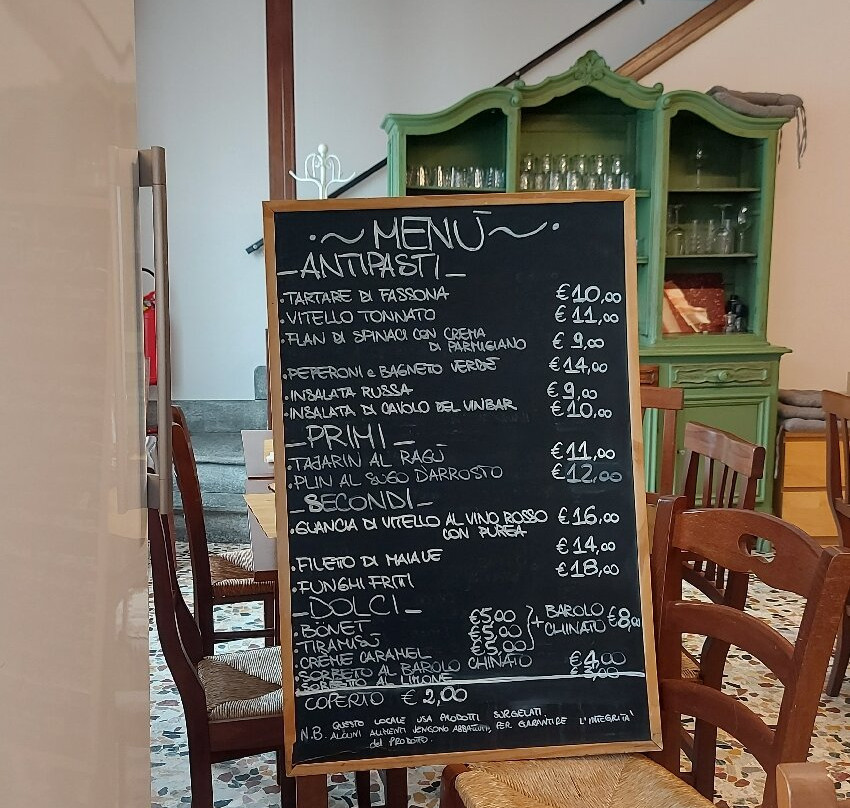 MENÙ
ANTIPASTI
• TARTARE DI FASSONA €10,00
• VITELLO TONNATO €11,00
• FLAN DI SPINACI CON CREMA € 9,00
DI PARMIGIANO
• PEPERONI e BAGNETO VERDE €14,00
• INSALATA RUSSA € 9,00
• INSALATA DI CAVOLO DEL VINBAR €10,00
PRIMI
• TAJARIN AL RAGÙ €11,00
• PLIN AL SUGO D'ARROSTO €12,00
SECONDI
• GUANCIA DI VITELLO AL VINO ROSSO €16,00
CON PUREA
• FILETO DI MAIALE €14,00
• FUNGHI FRITI €18,00
DOLCI
• BÖNET €5,00 } + BAROLO CHINATO €8,00
• TIRAMISÙ €5,00
• CRÈME CARAMEL €5,00
• SORBETO AL BAROLO CHINATO €4,00
• SORBETTO AL LIMONE €3,00
COPERTO € 2,00
N.B. QUESTO LOCALE USA PRODOTTI SURGELATI
ALCUNI ALIMENTI VENGONO ABBATTUTI, PER GARANTIRE L'INTEGRITÀ
del PRODOTO.